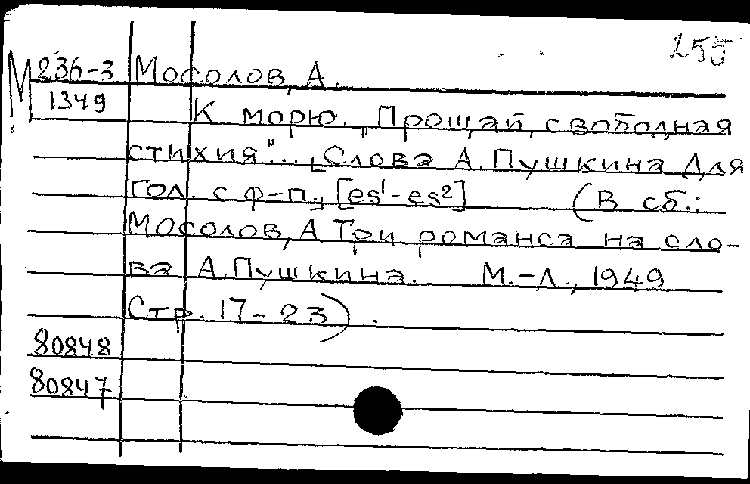 255
М 236-3 Мосолов, А.
1349 К морю. „Прощай, свободная
стихия"... Слова А. Пушкина Для
гол. с ф-п., [es¹-es²] (В сб.:
Мосолов, А Три романса на сло-
ва А. Пушкина. М.-Л., 1949
Стр. 17-23).
80848
80847